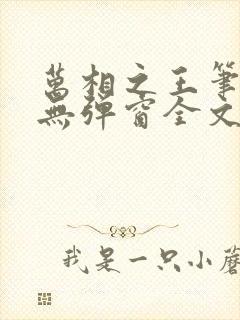 萬相之王筆
無彈窗全文
我是一只小蘑